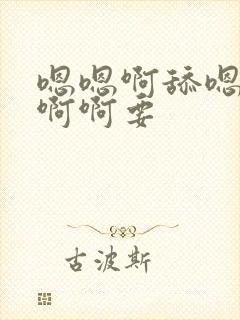 嗯嗯啊舔嗯
啊啊要
古波斯